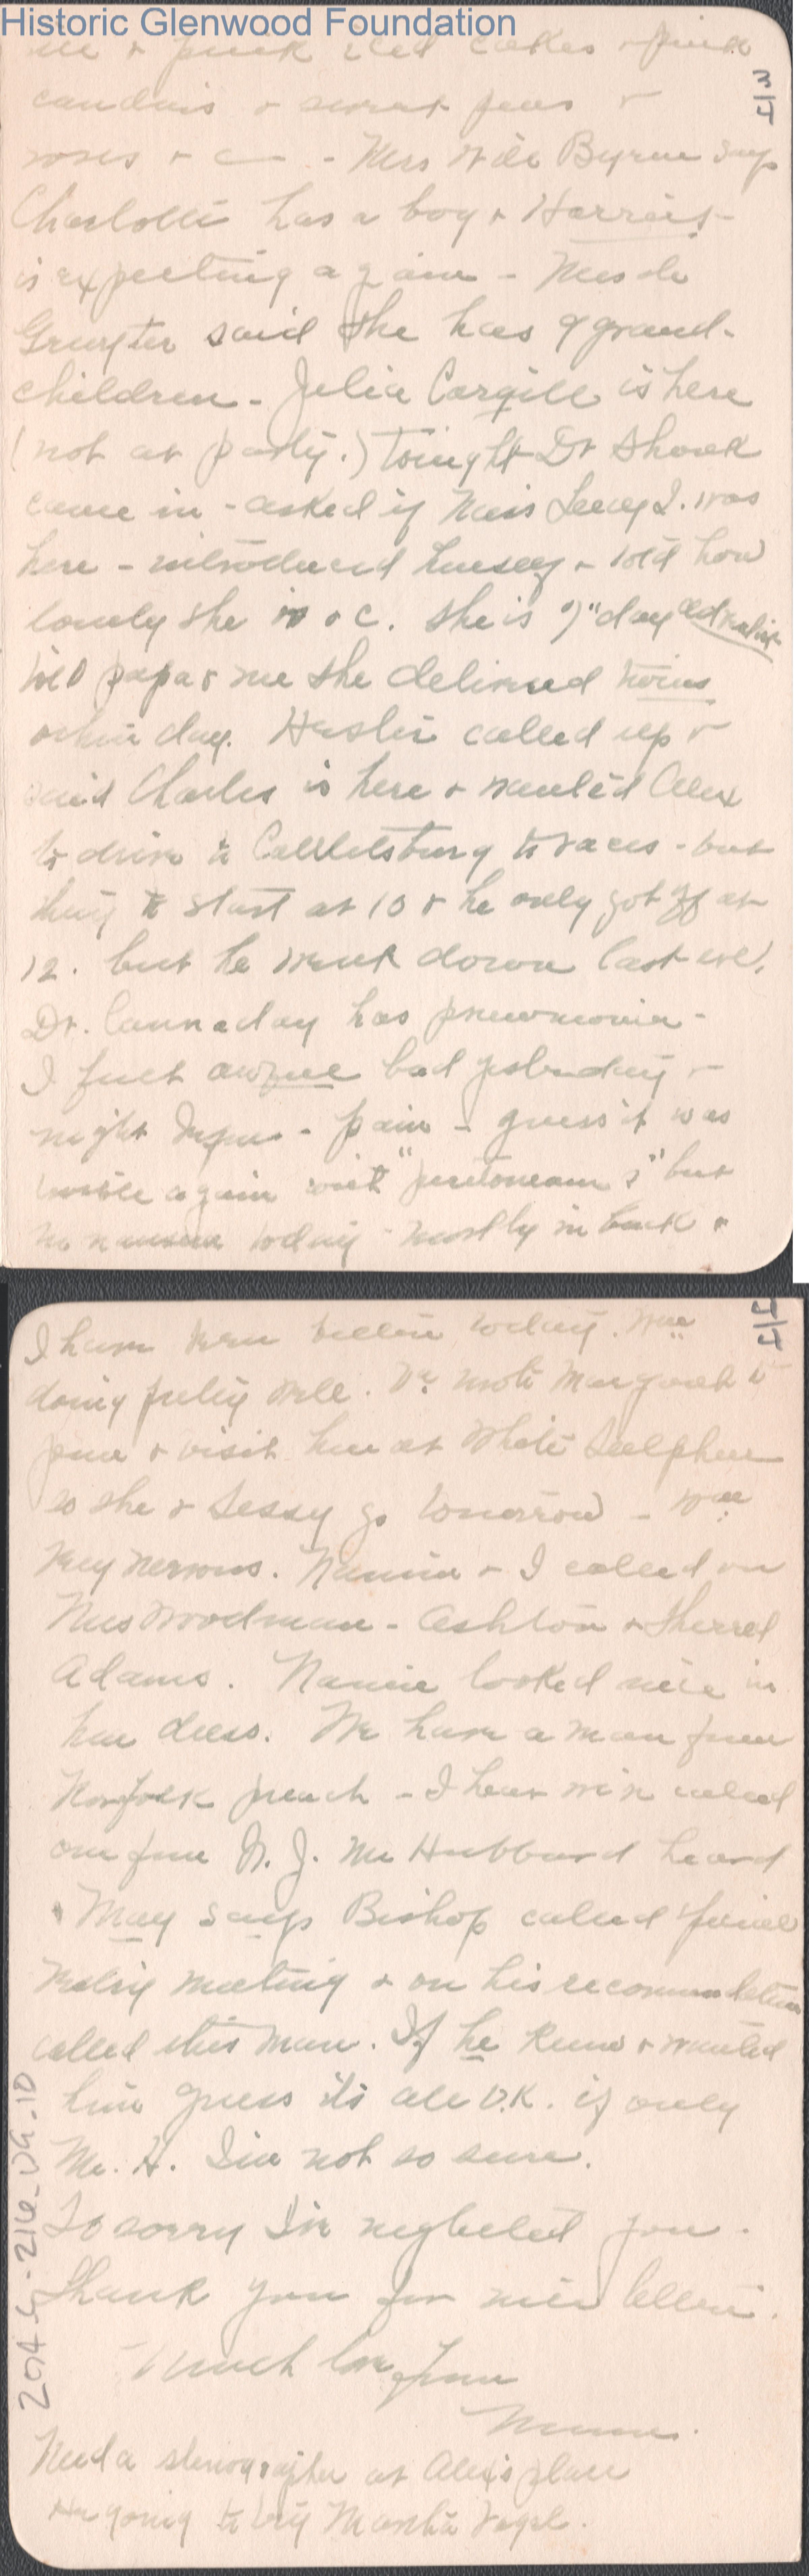 Historic Glenwood Foundation
& pink iced cakes & pink
3/4
candies & sweet peas &
roses & c - Mrs Will Byrne says
Charlotte has a boy & Harriet
is expecting again - Mrs de
Gruyter said she has 9 grand-
children - Julia Cargill is here
(not at party.) Tonight Dr Shouk
came in - asked if Miss Lucy Q. was
here - introduced herself & told how
lonely she is & c. She is 7" day
told papa & me she delivered twins
other day. called up &
said Charles is here & wanted Alex
to drive to Catlettsburg to races - but
they to start at 10 & he only got off at
12. but he went down last eve.
Dr. Cannaday has pneumonia -
I felt awful bad yesterday &
night - pain - guess it was
again with "peritoneum s" but
no nausea today - mostly in back &
4/4
I have been better today. Wm
doing pretty well. Dr. wrote Margaret to
& visit her at White Sulphur
so she & Sessy go tomorrow - Wm
very nervous. Nannie & I called on
Mrs Woodman - Ashton & Sherred
Adams. Nannie looked nice in
her dress. We have a man from
Norfolk preach - I hear we've called
one from N. J. Mr Hubbard heard
May says Bishop called
meeting & on his recommendation
called this man. If he knew & wanted
him guess it's all O.K. if only
Mr. H. I'm not so sure.
So sorry I've neglected you.
Thank you for nice letter.
Much love from
Need a stenographer at Alex's place
to try Martha